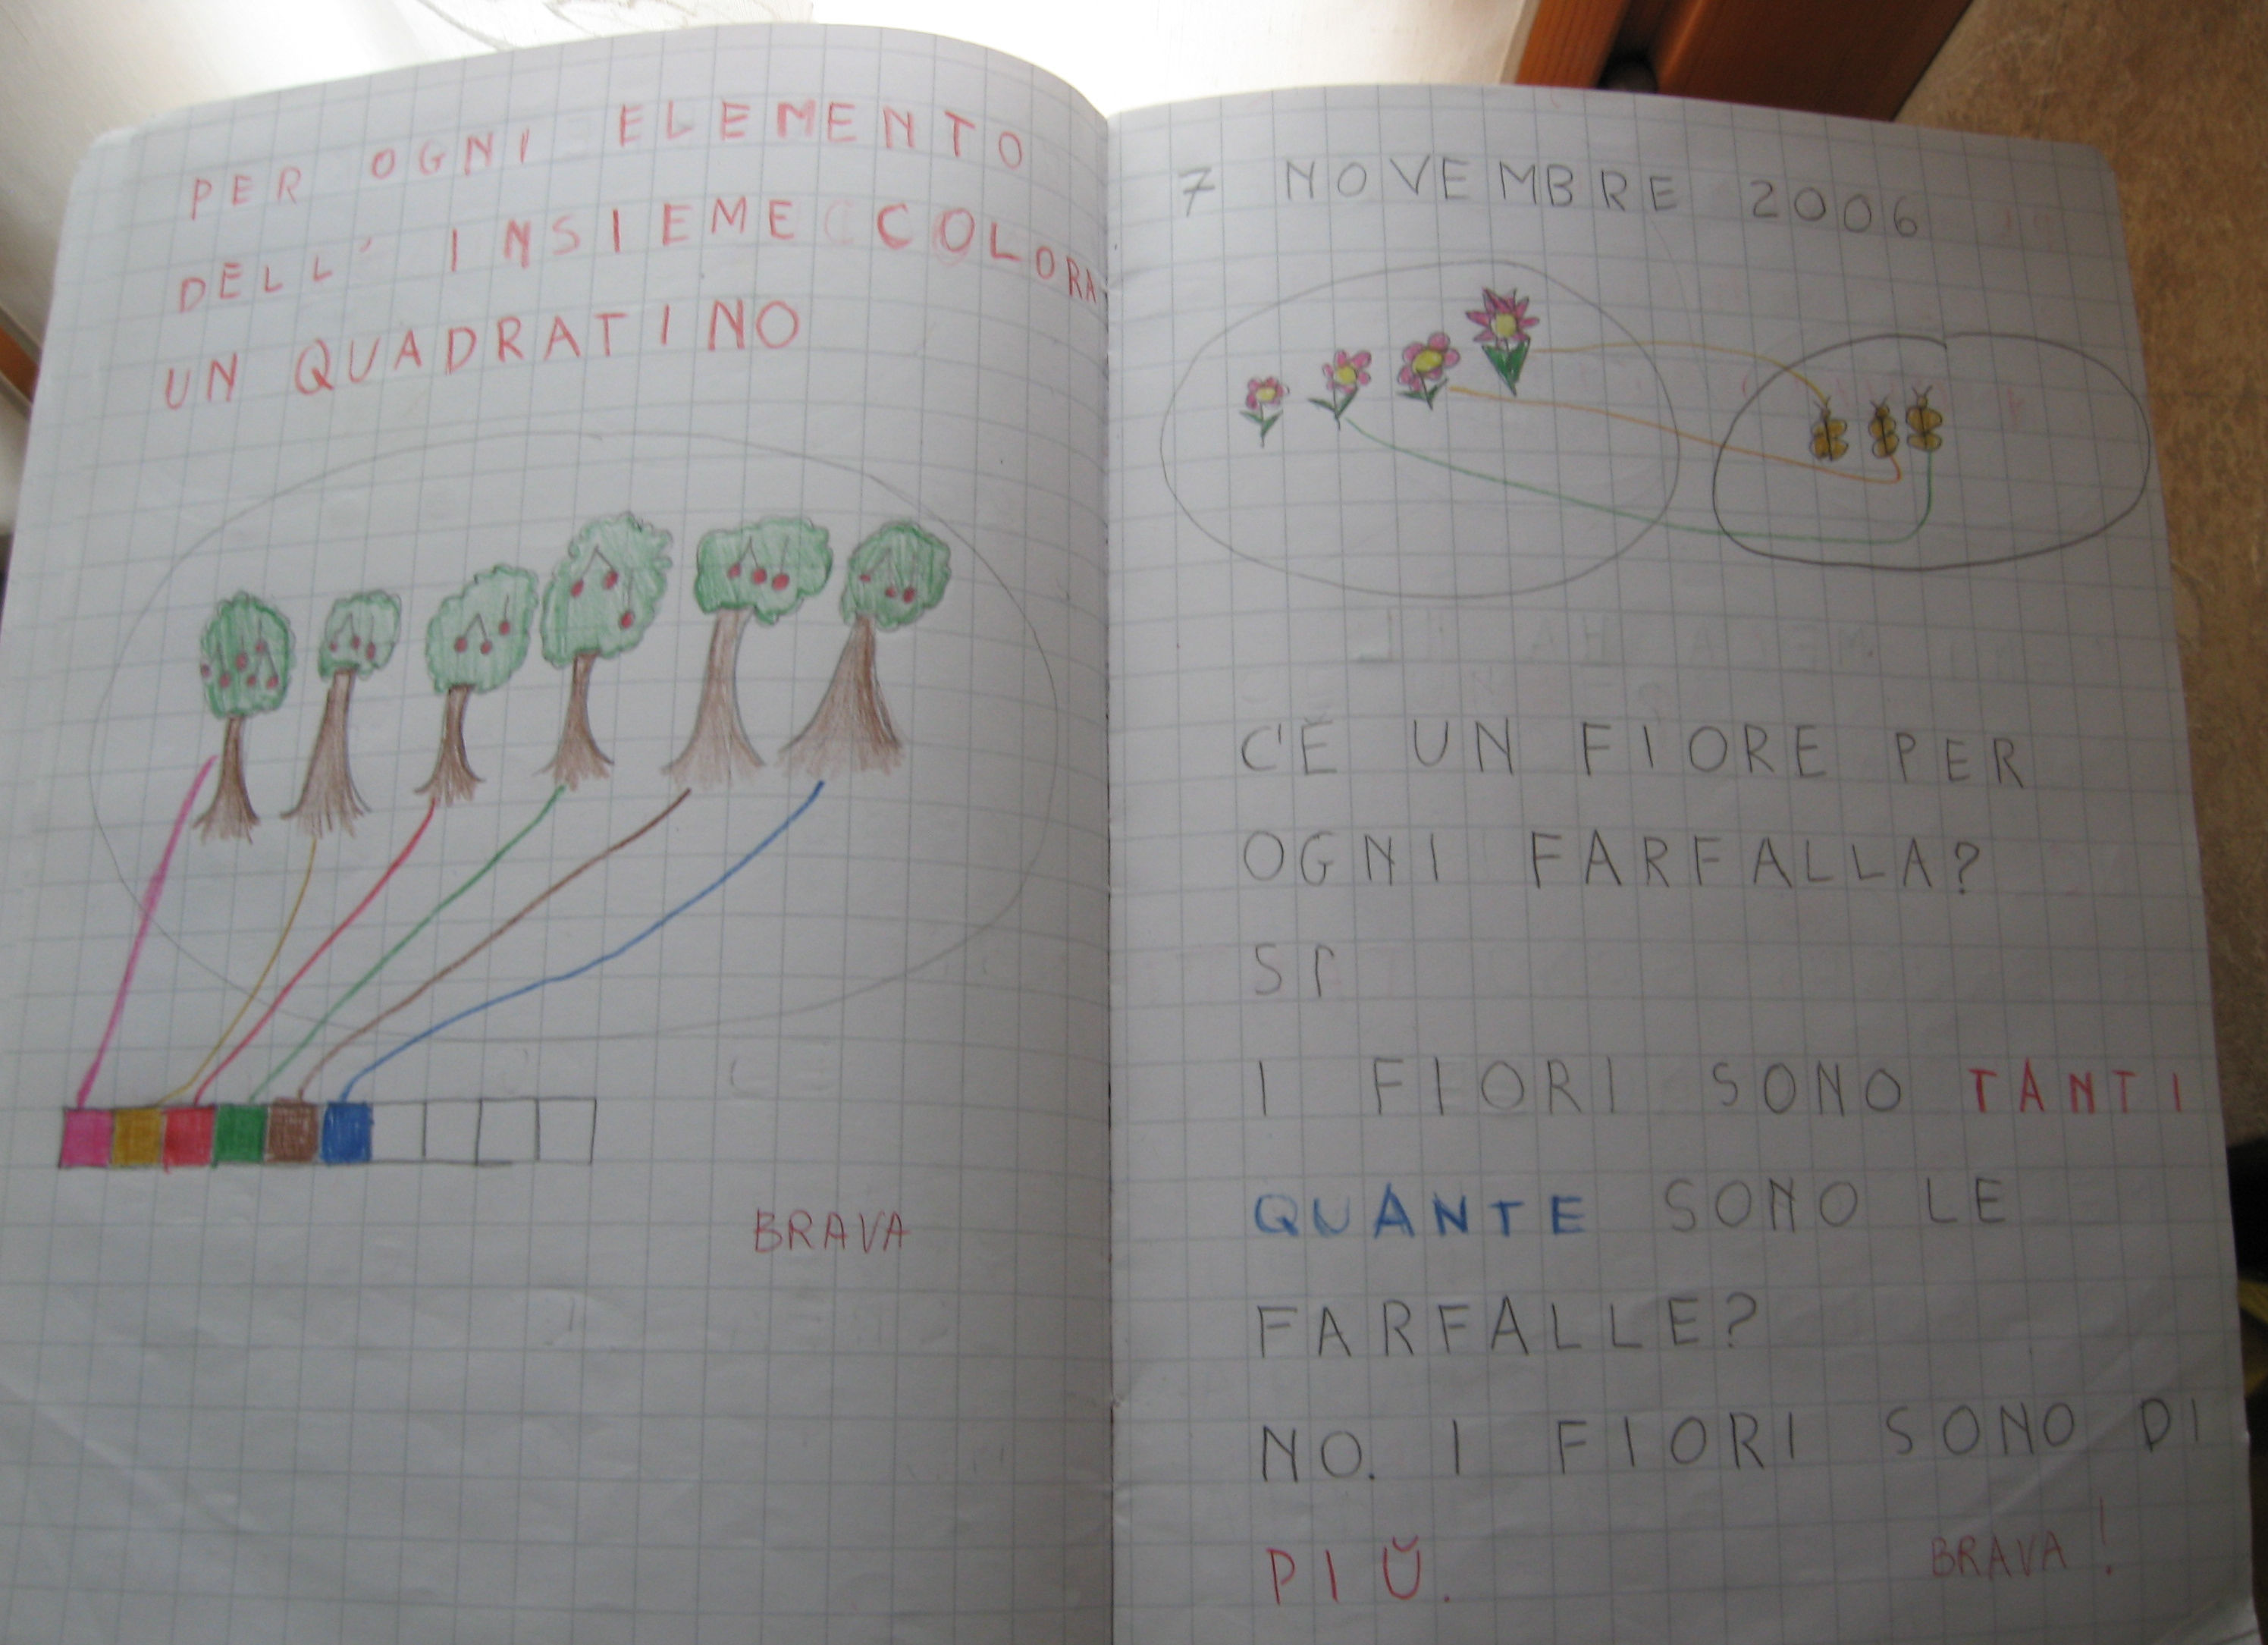 PER OGNI ELEMENTO
DELL' INSIEME COLORA
UN QUADRATINO
BRAVA
7 NOVEMBRE 2006
C'È UN FIORE PER
OGNI FARFALLA?
SI
I FIORI SONO TANTI
QUANTE SONO LE
FARFALLE?
NO. I FIORI SONO DI
PIÙ.
BRAVA!